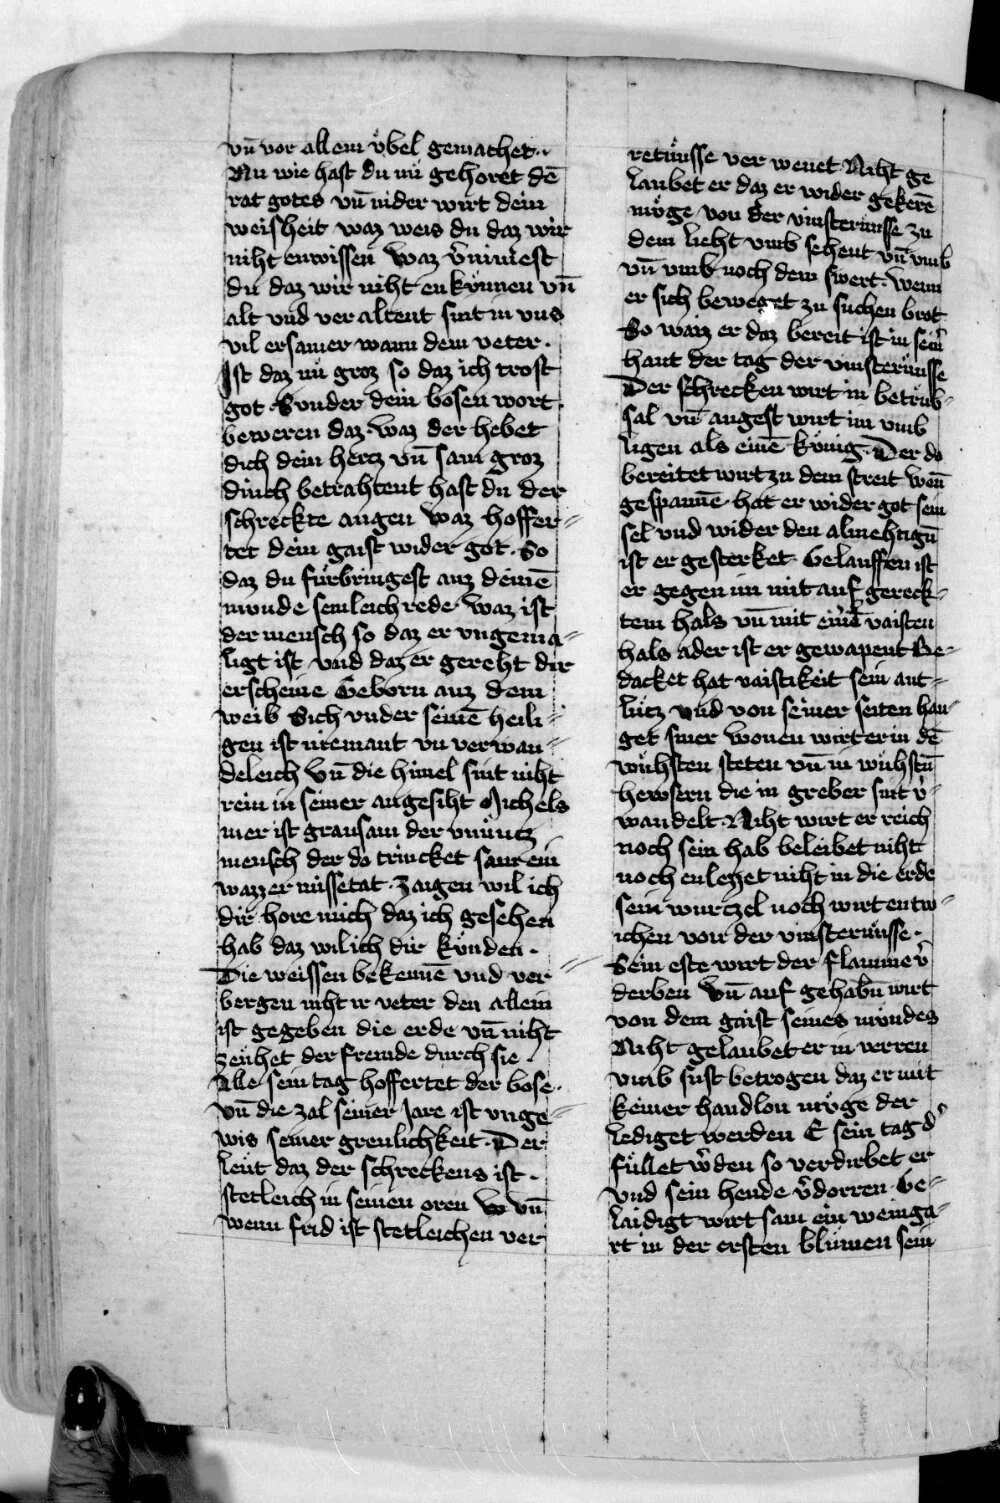 vn̄ vor allem v̈bel gemachet ·
Nu wie hast du nu̇ gehoret dē
rat gotes vn̄ nider wirt dein
weisheit waz weis du daz wir
niht enwissen waz v̄nimest
du daz wir niht enkv̈nnen vn̄
alt vnd veraltent sint in vns
vil ersamer wann dem veter ·
Ist daz nu̇ groz so daz ich trost
got · Sunder dein bosen wort
beweren daz · waz der hebet
dich dein hertz vn̄ sam groz
dinch betrahtent hast du der
schreckte augen waz hoffer⸗
tet dein gaist wider got · So
daz du fu̇rbringest auz deinē
munde semleich rede · waz ist
der mensch so daz er vngema⸗
ligt ist vnd daz er gereht dir
erscheine Geborn auz dem
weib Sich vnder seinē heili⸗
gen ist niemant vn verwan⸗
deleich Vn̄ die himel sint niht
rein in seiner angesiht Michels
mer ist grausam der vnnu̇tz
mensch der do trincket sam ein
wazzer missetat · Zaigen wil ich
dir hore mich daz ich gesehen
hab daz wil ich dir kv̈nden ·
Die weissen bekennē vnd ver⸗
bergen niht ir veter den allein
ist gegeben die erde vn̄ niht
zeu̇het der fremde durch sie ·
Alle sein tag hoffertet der bose ·
vn̄ die zal seiner Jare ist vnge⸗
wis seiner greulichkeit · Der
leu̇t daz der schreckens ist ·
stetleich in seinen oren vn̄
wenn frid ist stetleichen ver
retnu̇sse ver wenet Niht ge
laubet er daz er wider gekerē
mv̈ge von der vinsternusse zu
dem lieht vmb sehent vn̄ vmb
vn̄ vmb noch dem swert · wenn
er sich beweget zu suchen brot
So waiz er daz bereit ist in sein̄
hant der tag der vinsternu̇sse
Der schrecken wirt in betrüb⸗
sal vn̄ angest wirt im vmb
ligen als einē kv̈nig · Der do
bereitet wirt zu dem streit wen̄
gespannē hat er wider got sein
sel vnd wider den almehtign̄
ist er gesterket · Gelauffen ist
er gegen im mit auf gereck⸗
tem hals vn̄ mit einē vaisten
hals ader ist er gewapent Be⸗
dacket hat vaistikeit sein ant⸗
lu̇tz vnd von seiner seiten han⸗
get smer wonen wirt er in dē
wu̇hsten steten vn̄ in wu̇hstn̄
hewsern die in greber sint v̄⸗
wandelt · Niht wirt er reich
noch sein hab beleibet niht
noch enleget niht in die erde
sein wurtzel noch wirt entw⸗
ichen von der vinsternu̇sse ·
Sein este wirt der flamme v̄
derben Vn̄ auf gehabn̄ wirt
von dem gaist seines mundes
Niht gelaubet er in verren
vmb sust betrogen daz er mit
keiner handlon mv̈ge der
lediget werden E sein tag d̄
fu̇llet w̄den so verdirbet er
vnd sein hende v̄dorren Ge⸗
laidigt wirt sam ein weinga⸗
rt in der ersten blu̇men sein